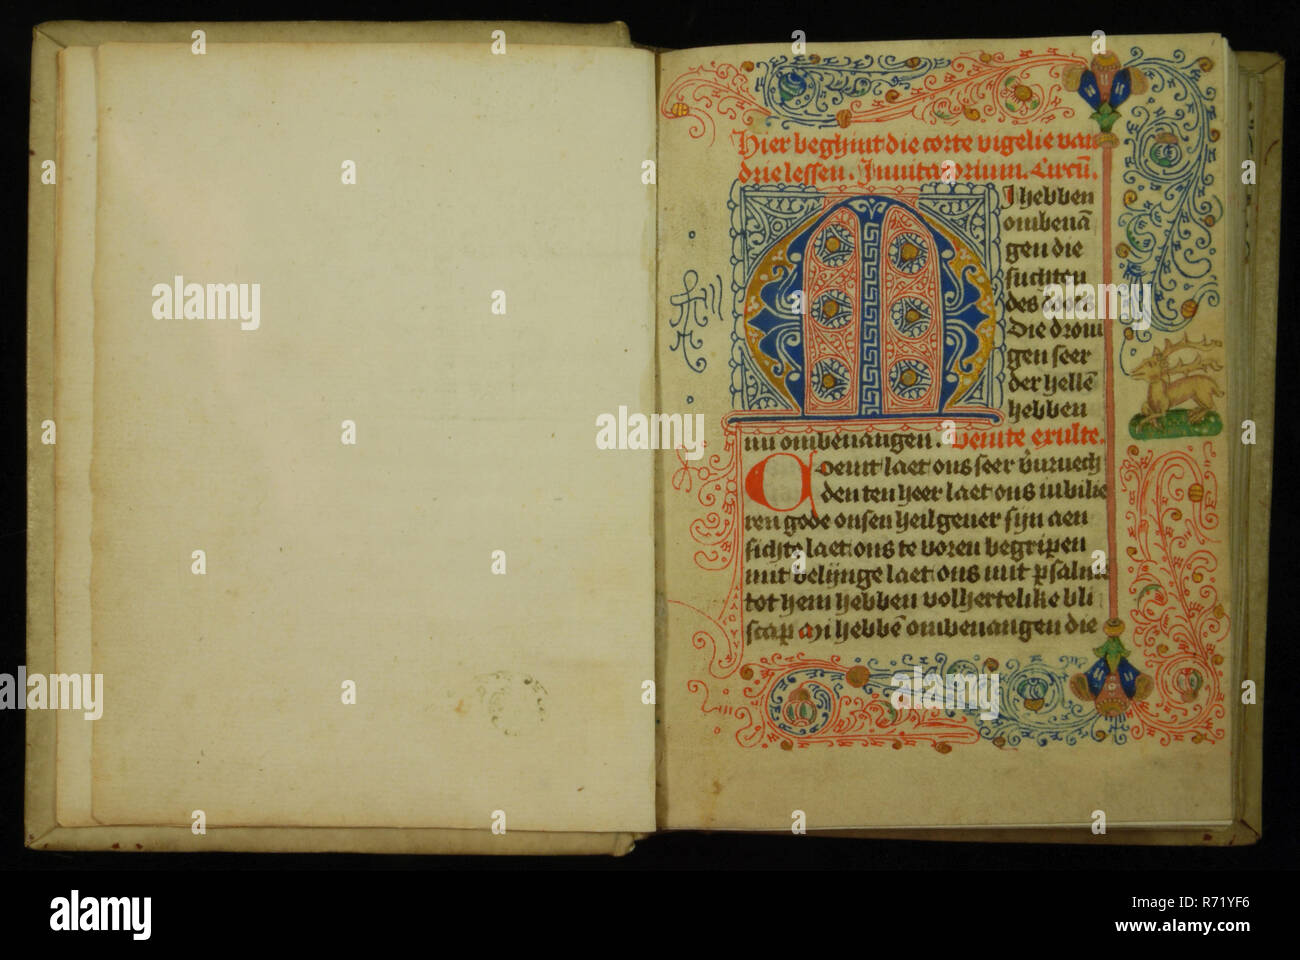 Hier beghint die corte vigelie van
drie lessen. Inuitatorium. Circū.
MI hebben
ombeuā
gen die
suchten
des doots
Die droui
gen seer
der hellē
hebben
mi ombeuangen. Venite exulte.
Coemt laet ons seer
den ten heer laet ons iubilie
ren gode onsen heilgeuer sijn aen
sichte laet ons te voren begripen
mit belijnge laet ons mit psalme
tot hem hebben volhertelike bli
scap Mi hebbē ombeuangen die
alamy
Image ID: R71YF6
www.alamy.com